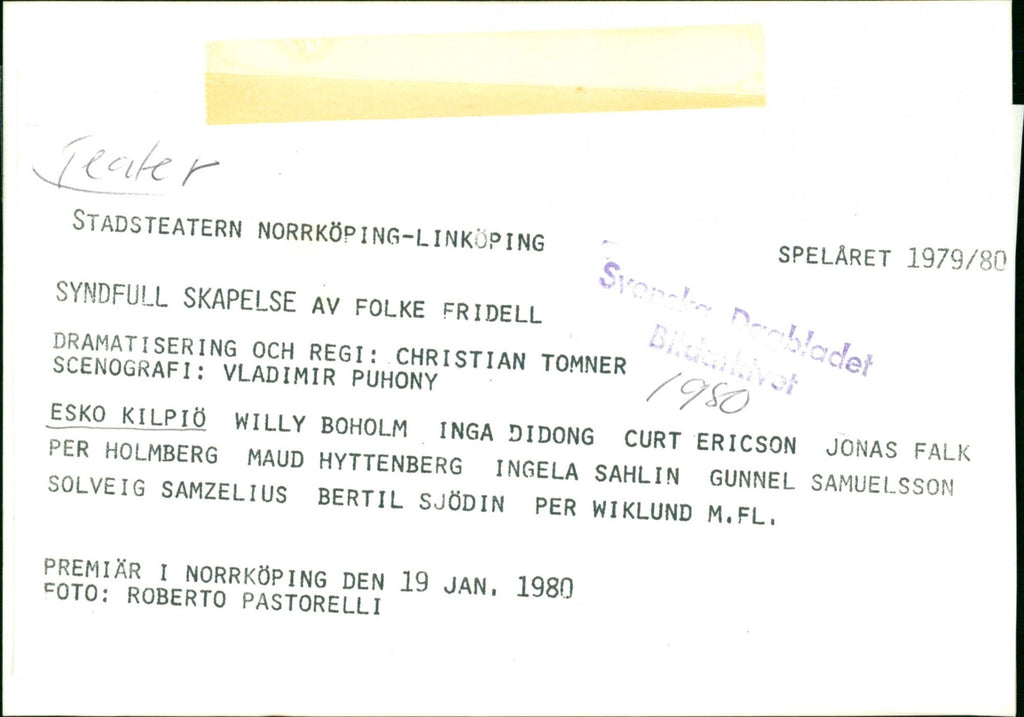 Teater
STADSTEATERN NORRKÖPING-LINKÖPING
SPELÅRET 1979/80
Svenska Dagbladet
Bildarkivet
1980
SYNDFULL SKAPELSE AV FOLKE FRIDELL
DRAMATISERING OCH REGI: CHRISTIAN TOMNER
SCENOGRAFI: VLADIMIR PUHONY
ESKO KILPIÖ WILLY BOHOLM INGA DIDONG CURT ERICSON JONAS FALK
PER HOLMBERG MAUD HYTTENBERG INGELA SAHLIN GUNNEL SAMUELSSON
SOLVEIG SAMZELIUS BERTIL SJÖDIN PER WIKLUND M.FL.
PREMIÄR I NORRKÖPING DEN 19 JAN. 1980
FOTO: ROBERTO PASTORELLI